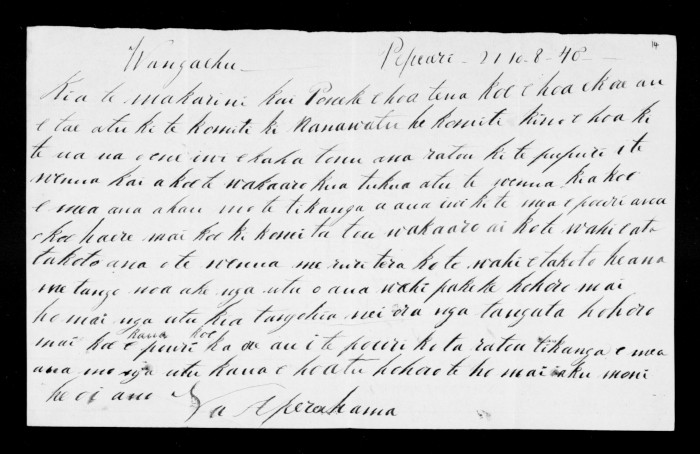 14
Wangaehu Pepuari - 21 10 - 8 - 48
Kia te makarini kai Poneke e hoa tena koe e hoa e koa au
e tae atu ki te komiti ki Manawatu he komiti kino e hoa ki
te ua na o enei iwi e kaha tonu ana ratou ki te pupuri i te
wenua kai a koe te wakaaro kua tukua atu te wenua kia koe
e mea ana ahau mo te tikanga a aua iwi ki te nga e pouri ana
e koe haere mai koe ki komiti tou wakaaro ai ko te wahi e ata
takoto ana o te wenua me ruri tera ko te wahi e takoto he ana
me tango noa ake nga utu o ana wahi pakeke hohoro mai
ho mai nga utu kia tangohia wei ora nga tangata hohoro
mai koe kaua koe e pouri ka ou au i te pouri ko ta ratou tikanga e mea
ana mo nga utu kaua e hoatu hohoro te ho mai aku moni
he oi ano Na Aperahama